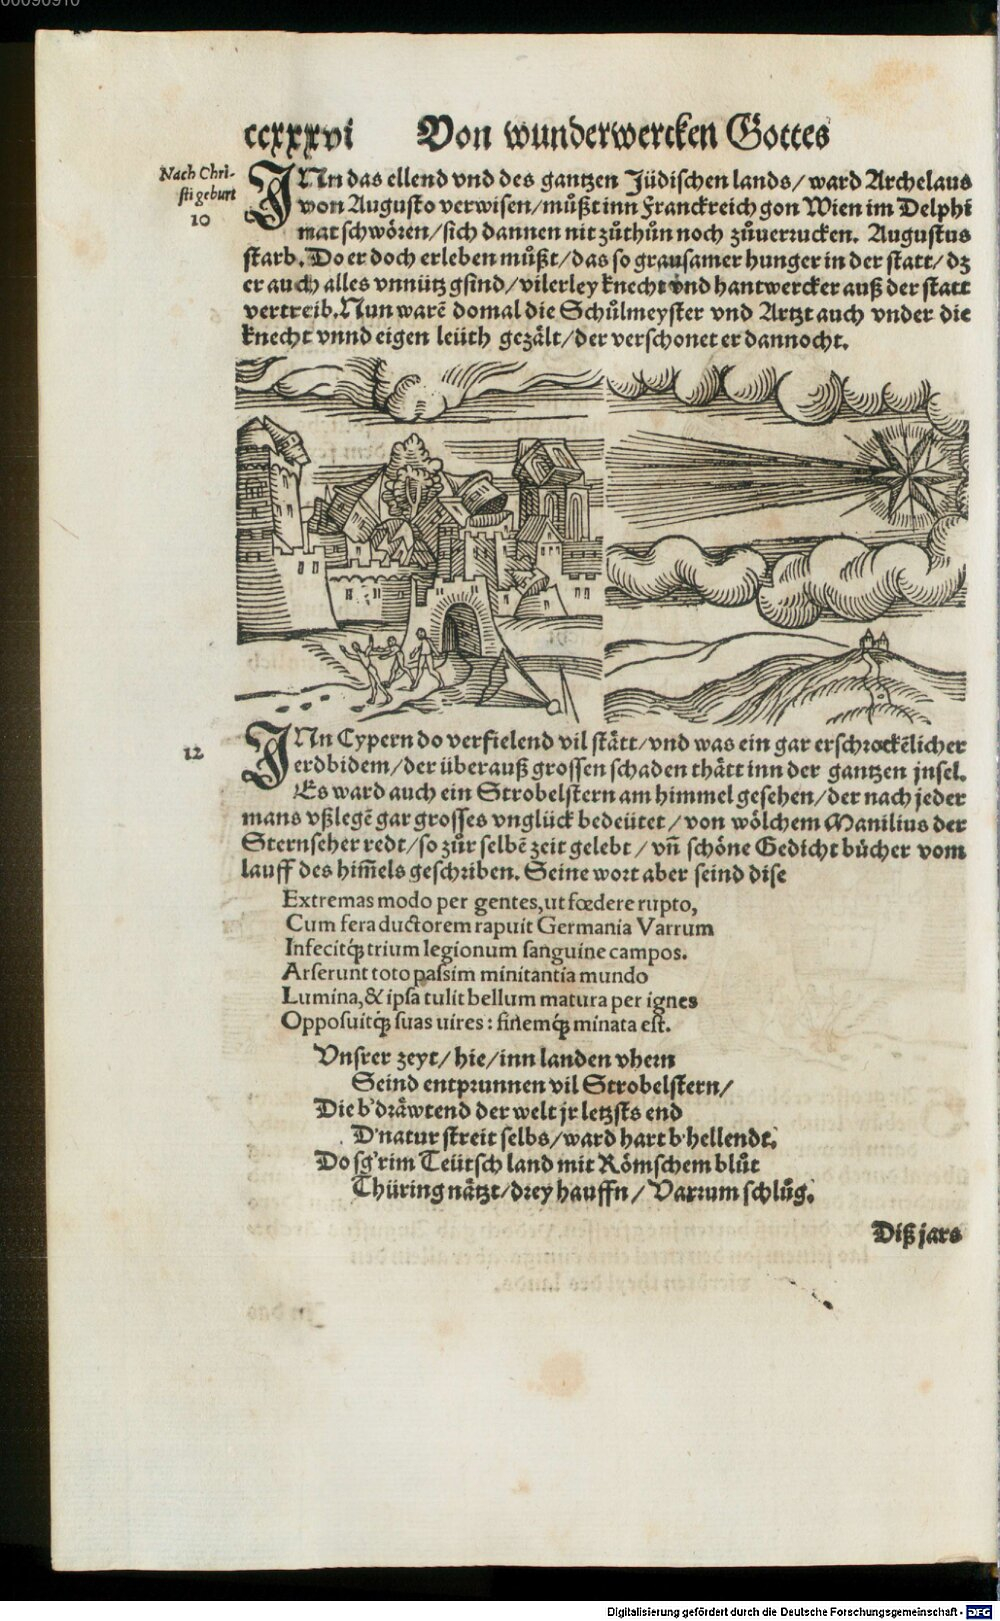 ccxxxvi Von wunderwercken Gottes
Nach Chri-
sti geburt
10
INn das ellend vnd des gantzen Jüdischen lands/ ward Archelaus
von Augusto verwisen/můßt inn Franckreich gon Wien im Delphi
nat schwören/sich dannen nit zůthůn noch zůuerrucken. Augustus
starb. Do er doch erleben můßt/das so grausamer hunger in der statt/dz
er auch alles vnnütz gsind/vilerley knecht vnd hantwercker auß der statt
vertreib. Nun warē domal die Schůlmeyster vnd Artzt auch vnder die
knecht vnnd eigen leüth gezält/der verschonet er dannocht.
12
INn Cypern do verfielend vil stätt/vnd was ein gar erschrockēlicher
erdbidem/der überauß grossen schaden thätt inn der gantzen jnsel.
Es ward auch ein Strobelstern am himmel gesehen/der nach jeder
mans vßlegē gar grosses vnglück bedeütet/von wölchem Manilius der
Sternseher redt/so zůr selbē zeit gelebt/vñ schöne Gedicht bücher vom
lauff des him̄els geschriben. Seine wort aber seind dise
Extremas modo per gentes, ut fœdere rupto,
Cum fera ductorem rapuit Germania Varrum
Infecitq́; trium legionum sanguine campos.
Arserunt toto passim minitantia mundo
Lumina, & ipsa tulit bellum matura per ignes
Opposuitq́; suas uires: finemq́; minata est.
Vnsrer zeyt/hie/inn landen vhern
Seind entprunnen vil Strobelstern/
Die b'dräwtend der welt jr letzsts end
D'natur streit selbs/ward hart b'hellendt.
Do sg'rim Teütsch land mit Römschem blůt
Thüring nätzt/drey hauffn/Varrum schlůg.
Diß jars
Digitalisierung gefördert durch die Deutsche Forschungsgemeinschaft - DFG